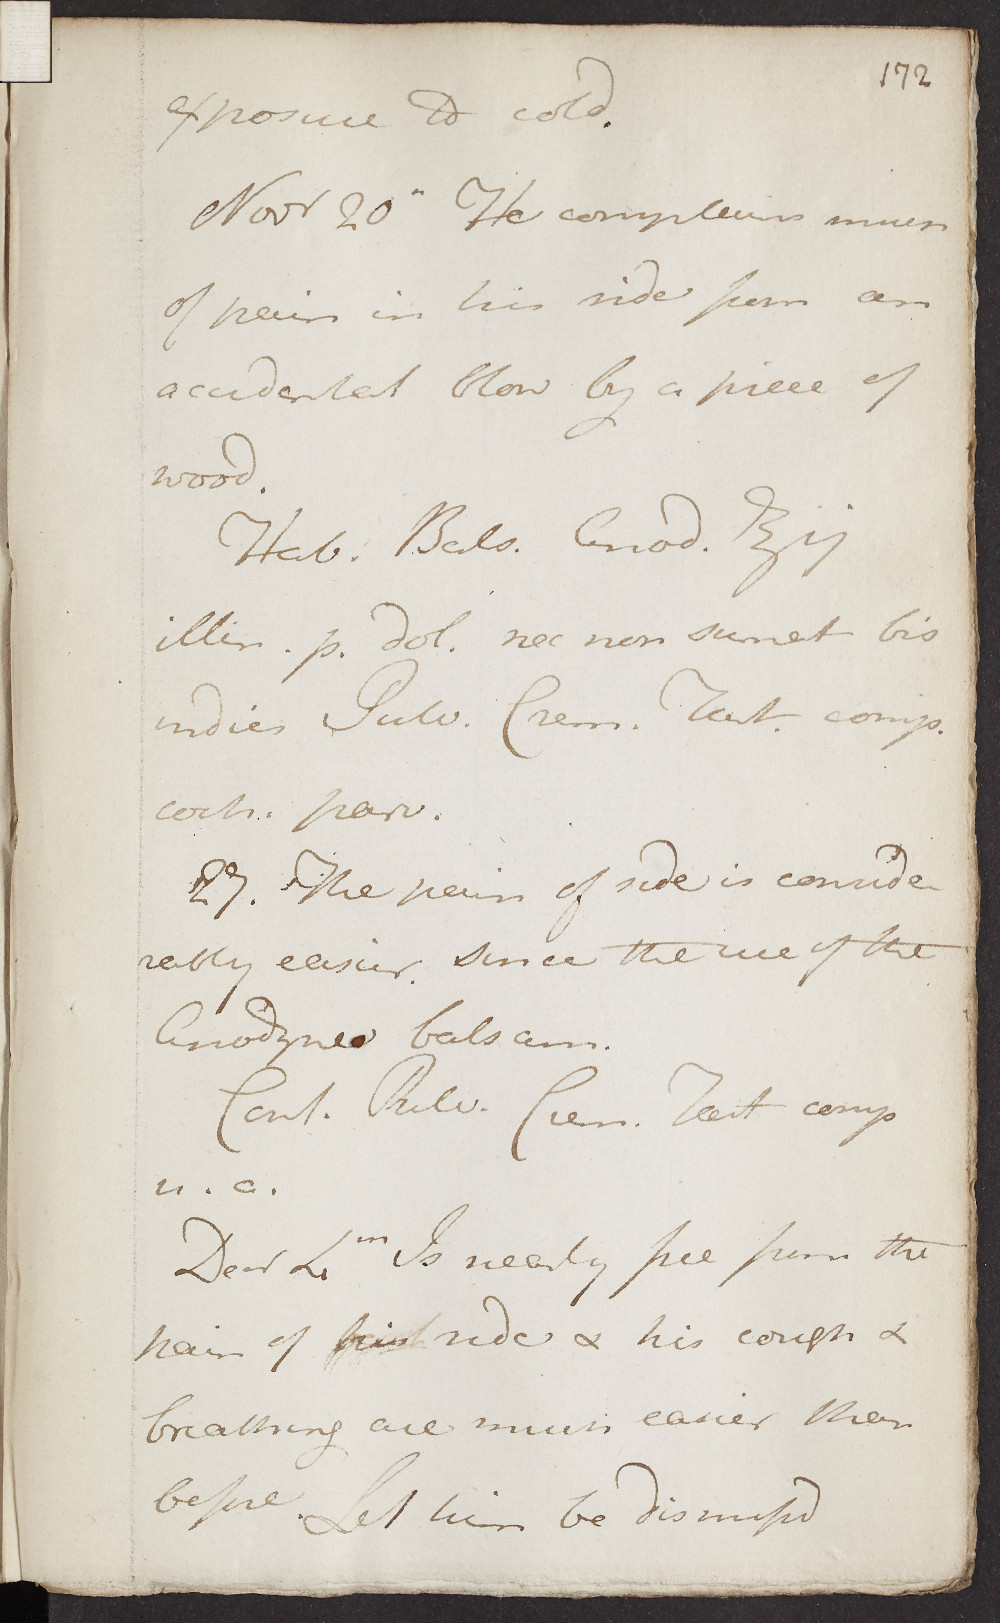 172
exposure to cold.
Novr 20" He complains much
of pain in his side from an
accidental blow by a piece of
wood.
Hab. Bals. Anod. ℥ij
illin. p. dol. nec non sumat bis
indies Pulv. Crem. Tart. comp.
coch. parv.
27. The pain of side is conside
rably easier. since the use of the
Anodyne balsam.
Cont. Pulv. Crem. Tart comp
u. a.
Decr 4th Is nearly free from the
pain of his side & his cough &
breathing are much easier than
before. Let him be dismissd